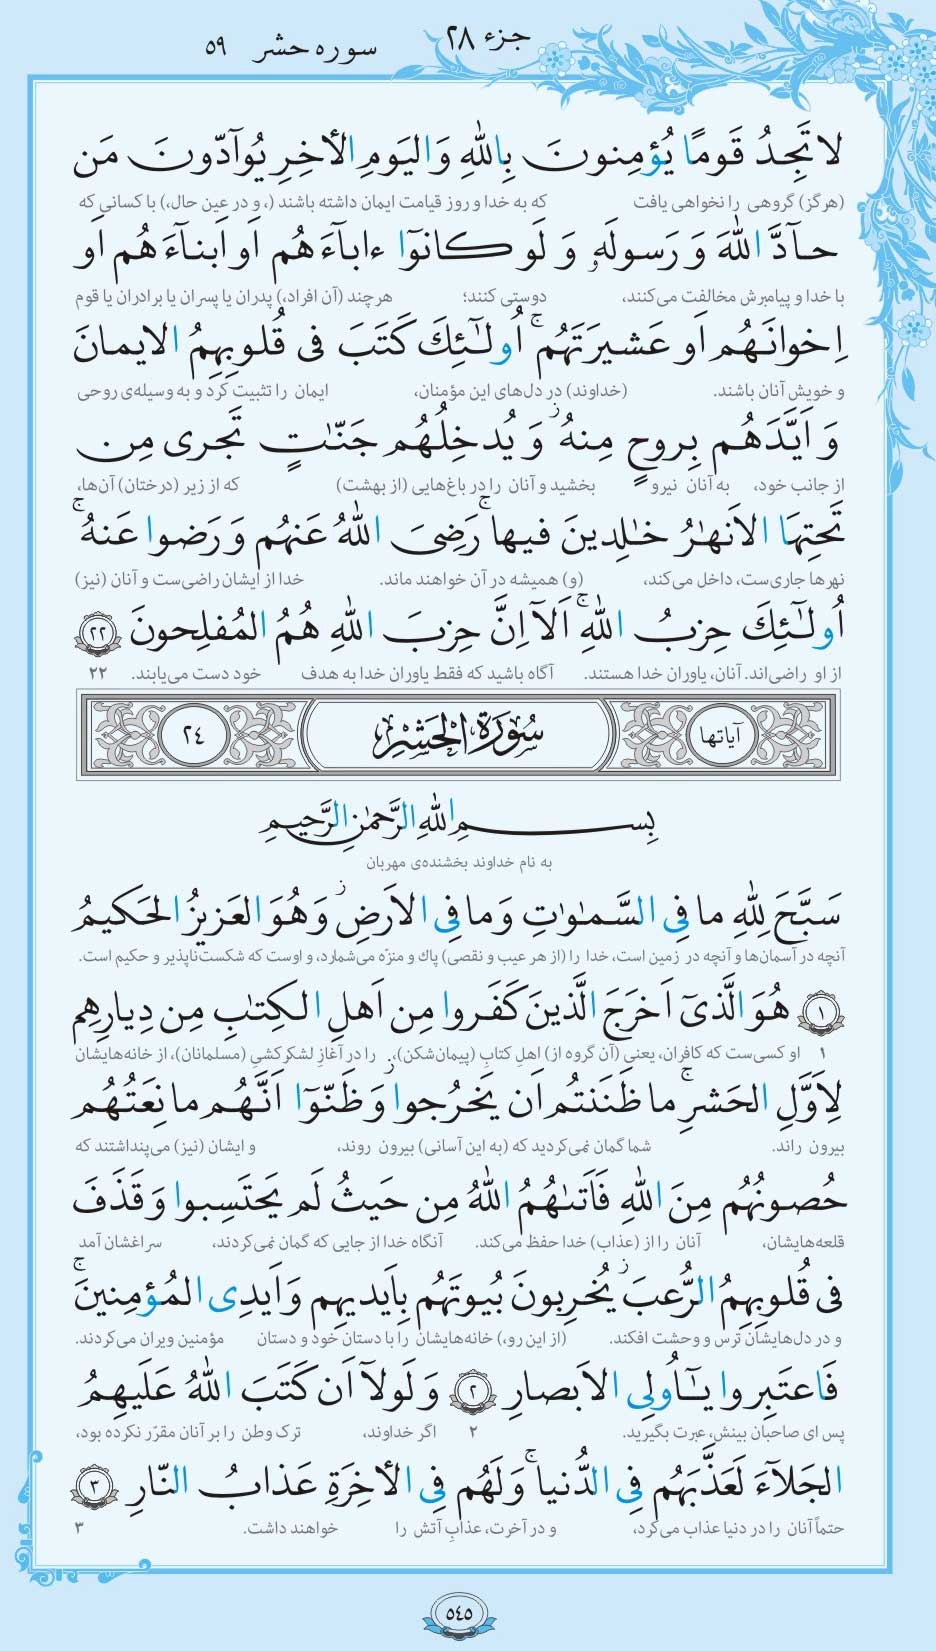 جزء ۲۸
سوره حشر ۵۹
لا تَجِدُ قَومًا يُؤمِنونَ بِاللّٰهِ وَ اليَومِ الأخِرِ يُوآدّونَ مَن
(هرگز) گروهی را نخواهی یافت که به خدا و روز قیامت ایمان داشته باشند (، و در عین حال،) با کسانی که
حآدَّ اللّٰهَ وَ رَسولَهٗ وَ لَو كانوٓا ءابآءَهُم اَو اَبنآءَهُم اَو
با خدا و پیامبرش مخالفت می‌کنند، دوستی کنند؛ هرچند (آن افراد،) پدران یا پسران یا برادران یا قوم
اِخوانَهُم اَو عَشيرَتَهُم ۚ اُولٰٓئِكَ كَتَبَ فى قُلوبِهِمُ الايمانَ
و خویش آنان باشند. (خداوند) در دل‌های این مؤمنان، ایمان را تثبیت کرد و به وسیله‌ی روحی
وَ اَيَّدَهُم بِروحٍ مِنهُ ۖ وَ يُدخِلُهُم جَنّٰتٍ تَجرى مِن
از جانب خود، به آنان نیرو بخشید و آنان را در باغ‌هایی (از بهشت) که از زیر (درختان) آن‌ها،
تَحتِهَا الاَنهٰرُ خٰلِدينَ فيها ۚ رَضِىَ اللّٰهُ عَنهُم وَ رَضوا عَنهُ ۚ
نهرها جاری‌ست، داخل می‌کند، (و) همیشه در آن خواهند ماند. خدا از ایشان راضی‌ست و آنان (نیز)
اُولٰٓئِكَ حِزبُ اللّٰهِ ۚ اَلآ اِنَّ حِزبَ اللّٰهِ هُمُ المُفلِحونَ ۲۲
از او راضی‌اند. آنان، یاوران خدا هستند. آگاه باشید که فقط یاوران خدا به هدف خود دست می‌یابند. ۲۲
آیاتها سُورَةُ الحَشرِ ۲۴
بِسمِ اللّٰهِ الرَّحمٰنِ الرَّحيمِ
به نام خداوند بخشنده‌ی مهربان
سَبَّحَ لِلّٰهِ ما فِى السَّمٰوٰتِ وَ ما فِى الاَرضِ ۖ وَ هُوَ العَزيزُ الحَكيمُ
آنچه در آسمان‌ها و آنچه در زمین است، خدا را (از هر عیب و نقصی) پاک و منزّه می‌شمارد، و اوست که شکست‌ناپذیر و حکیم است.
۱ هُوَ الَّذىٓ اَخرَجَ الَّذينَ كَفَروا مِن اَهلِ الكِتٰبِ مِن دِيارِهِم
۱ او کسی‌ست که کافران، یعنی (آن گروه از) اهلِ کتابِ (پیمان‌شکن)، را در آغازِ لشکرکشیِ (مسلمانان)، از خانه‌هایشان
لِاَوَّلِ الحَشرِ ۚ ما ظَنَنتُم اَن يَخرُجوا ۖ وَ ظَنّوٓا اَنَّهُم مانِعَتُهُم
بیرون راند. شما گمان نمی‌کردید که (به این آسانی) بیرون روند، و ایشان (نیز) می‌پنداشتند که
حُصونُهُم مِنَ اللّٰهِ فَاَتٰىهُمُ اللّٰهُ مِن حَيثُ لَم يَحتَسِبوا ۖ وَ قَذَفَ
قلعه‌هایشان، آنان را از (عذاب) خدا حفظ می‌کند. آنگاه خدا از جایی که گمان نمی‌کردند، سراغشان آمد
فى قُلوبِهِمُ الرُّعبَ ۚ يُخرِبونَ بُيوتَهُم بِاَيديهِم وَ اَيدِى المُؤمِنينَ ۚ
و در دل‌هایشان ترس و وحشت افکند. (از این رو،) خانه‌هایشان را با دستان خود و دستان مؤمنین ویران می‌کردند.
فَاعتَبِروا يٰٓاُولِى الاَبصارِ ۲ وَ لَولآ اَن كَتَبَ اللّٰهُ عَلَيهِمُ
پس ای صاحبان بینش، عبرت بگیرید. ۲ اگر خداوند، ترک وطن را بر آنان مقرّر نکرده بود،
الجَلآءَ لَعَذَّبَهُم فِى الدُّنيا ۚ وَ لَهُم فِى الأخِرَةِ عَذابُ النّارِ ۳
حتماً آنان را در دنیا عذاب می‌کرد، و در آخرت، عذابِ آتش را خواهند داشت. ۳
۵۴۵